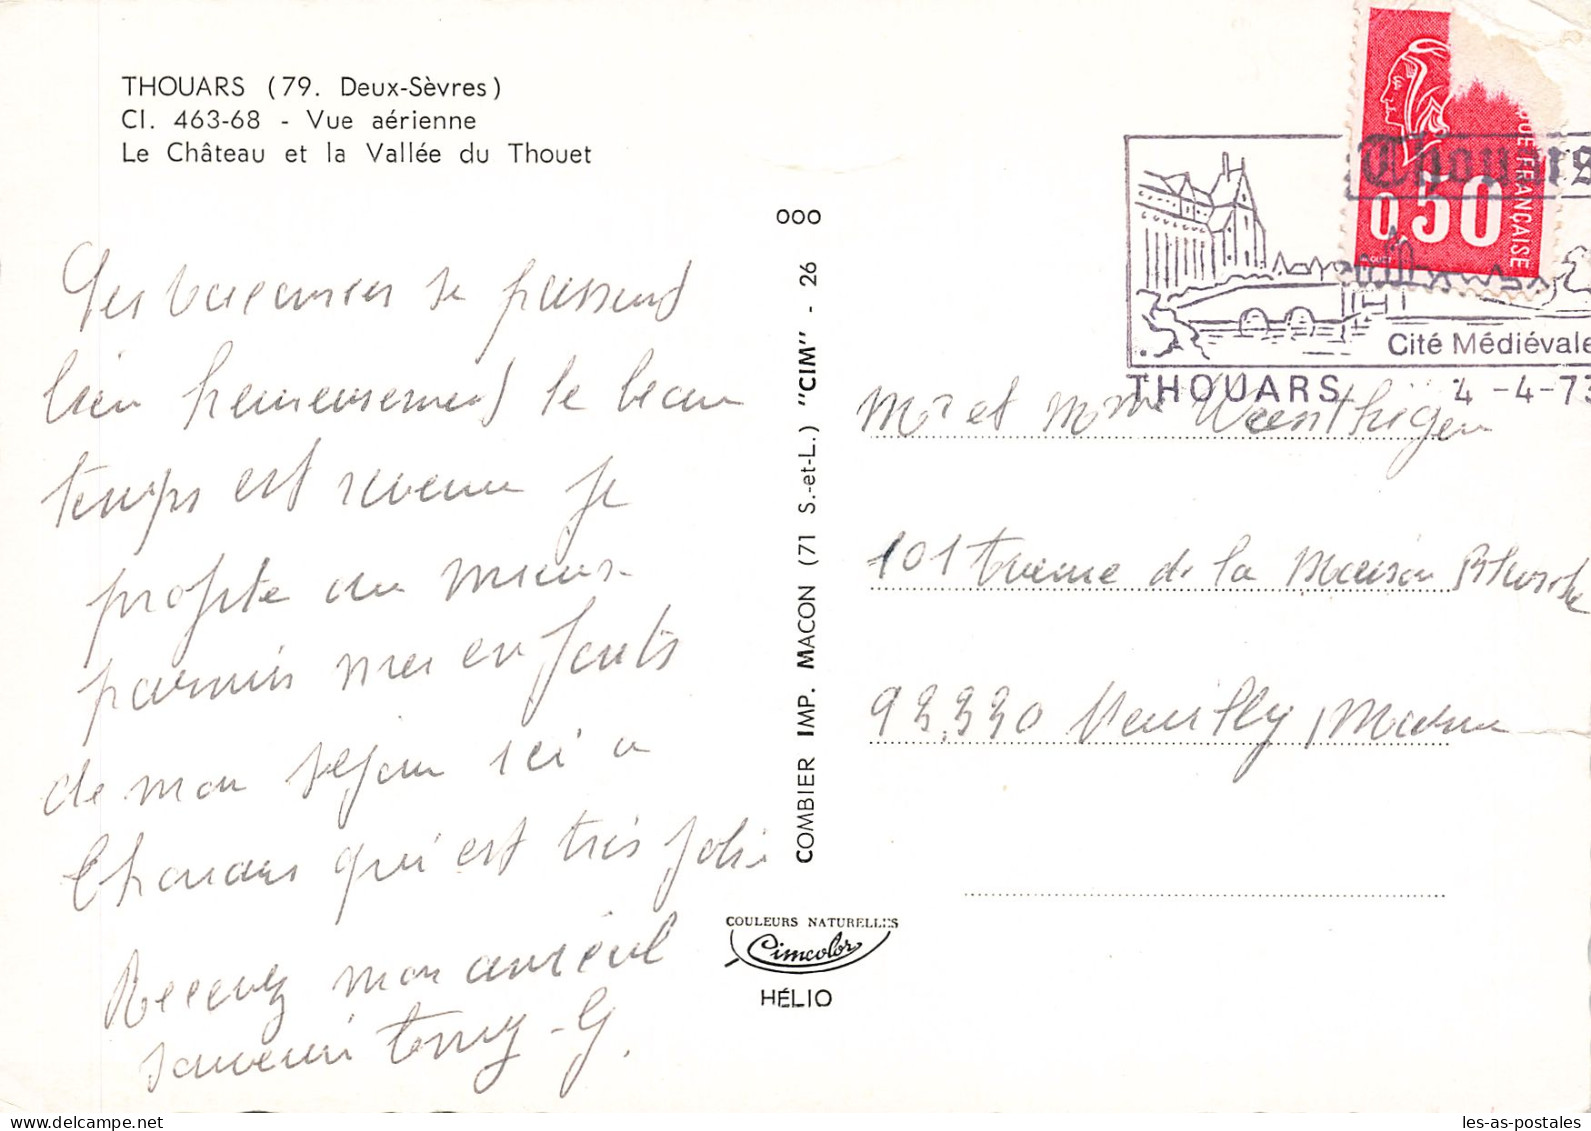 THOUARS (79. Deux-Sèvres)
Cl. 463-68 - Vue aérienne
Le Château et la Vallée du Thouet
Les vacances se passent
bien heureusement le beau
temps est revenu je
profite au mieux
parmis mes enfants
de mon séjour ici a
Thouars qui est très jolie
Recevez mon amical
souvenir
G.
COMBIER IMP. MACON (71 S.-et-L.) "CIM" - 26 000
COULEURS NATURELLES
Cimcolor
HÉLIO
0,50
QUE FRANÇAISE
Thouars
Cité Médiévale
THOUARS 4-4-73
Mr et Mme
101 Avenue de la Maison Blanche
93.330 Neuilly / Marne
les-as-postales